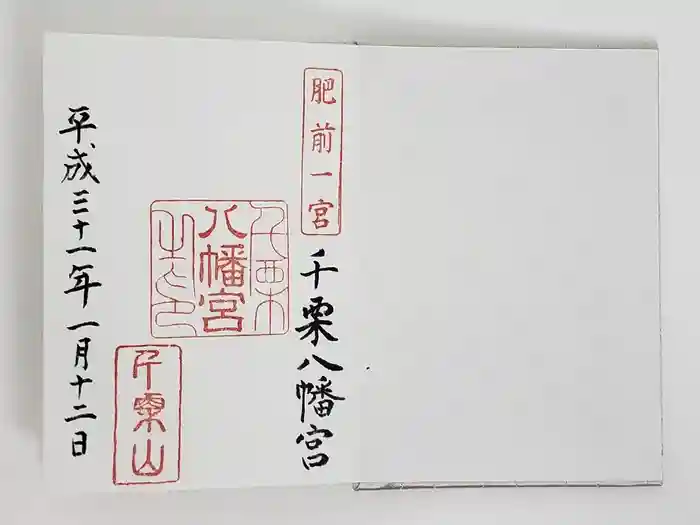 肥前一宮
千栗八幡宮
千栗
八幡宮
之印
千栗山
平成三十一年一月十二日